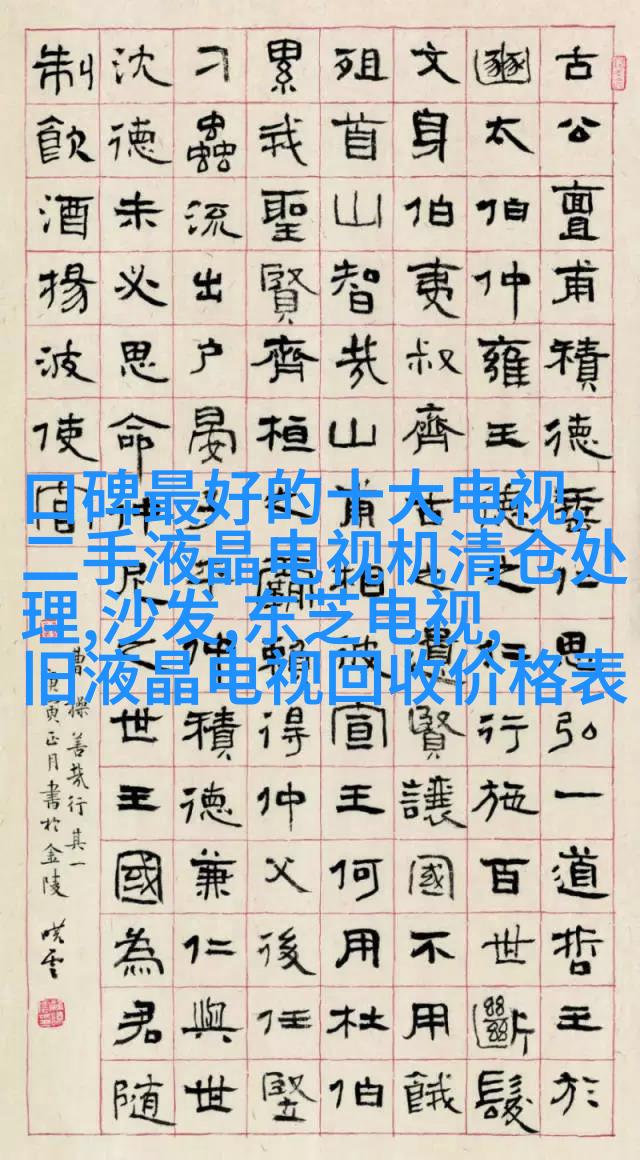 古公亶甫積德垂仁思弘一道哲王於
豳太伯仲雍王德之仁行施百世斷髮
文身伯夷叔齊古之遺賢讓國不用餓
殂首山智哉山甫相彼宣王何用杜伯
累我聖賢齊桓之霸賴得仲父後任豎
刁蟲流出戶晏子平仲積德兼仁與世
沈德未必思命仲尼之世王國為君隨
制飲酒揚波使官
曹操善哉行其一
庚寅正月書於金陵
口碑最好的十大电视,
二手液晶电视机清仓处
理,沙发,东芝电视,
旧液晶电视回收价格表